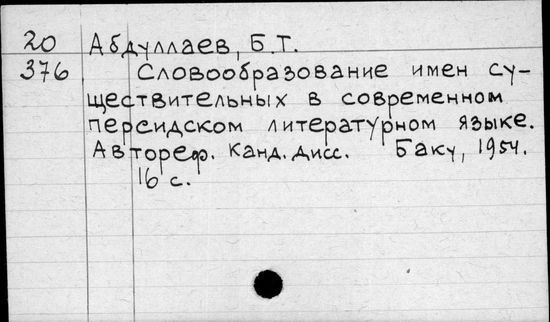 20 Абдуллаев, Б.Т.
376 Словообразование имен су-
ществительных в современном
персидском литературном языке.
Автореф. канд. дисс. Баку, 1954.
16 с.